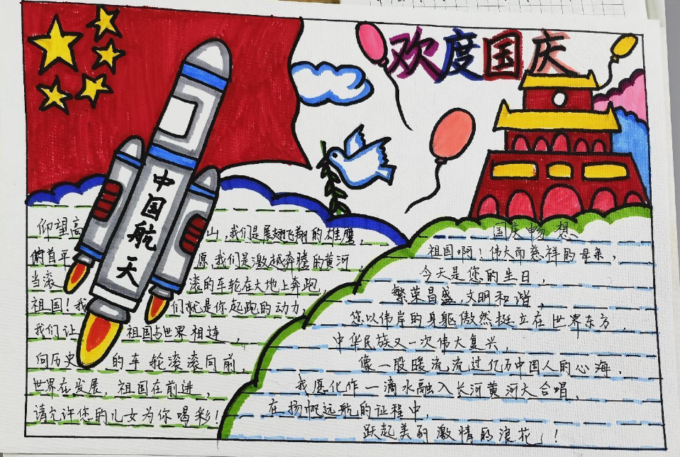 欢度国庆
中国航天
仰望高山,我们是展翅飞翔的雄鹰,
俯首平 愿我们是激越奔腾的黄河
当滚 滚的车轮在大地上奔跑,
祖国!我 们就是你起跑的动力,
我们让 祖国与世界相连,
向历史 的车轮滚滚向前,
世界在发展,祖国在前进,
请允许您的儿女为你喝彩!
国庆畅想
祖国啊!伟大而慈祥的母亲,
今天是您的生日,
繁荣昌盛,文明和谐,
您以伟岸的身躯傲然挺立在世界东方,
中华民族又一次伟大复兴,
像一股暖流流过亿万中国人的心海,
我愿化作一滴水融入长河黄河大合唱,
在扬帆远航的征程中,
跃起美丽激情的浪花!